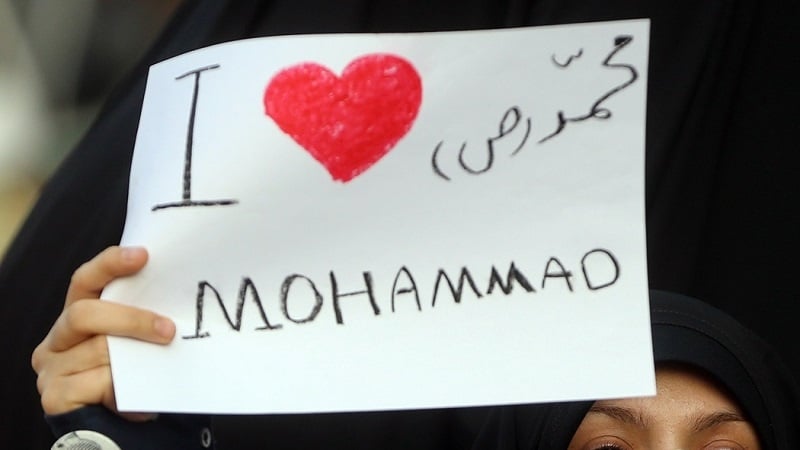 I ❤ محمّد (ص)
MOHAMMAD